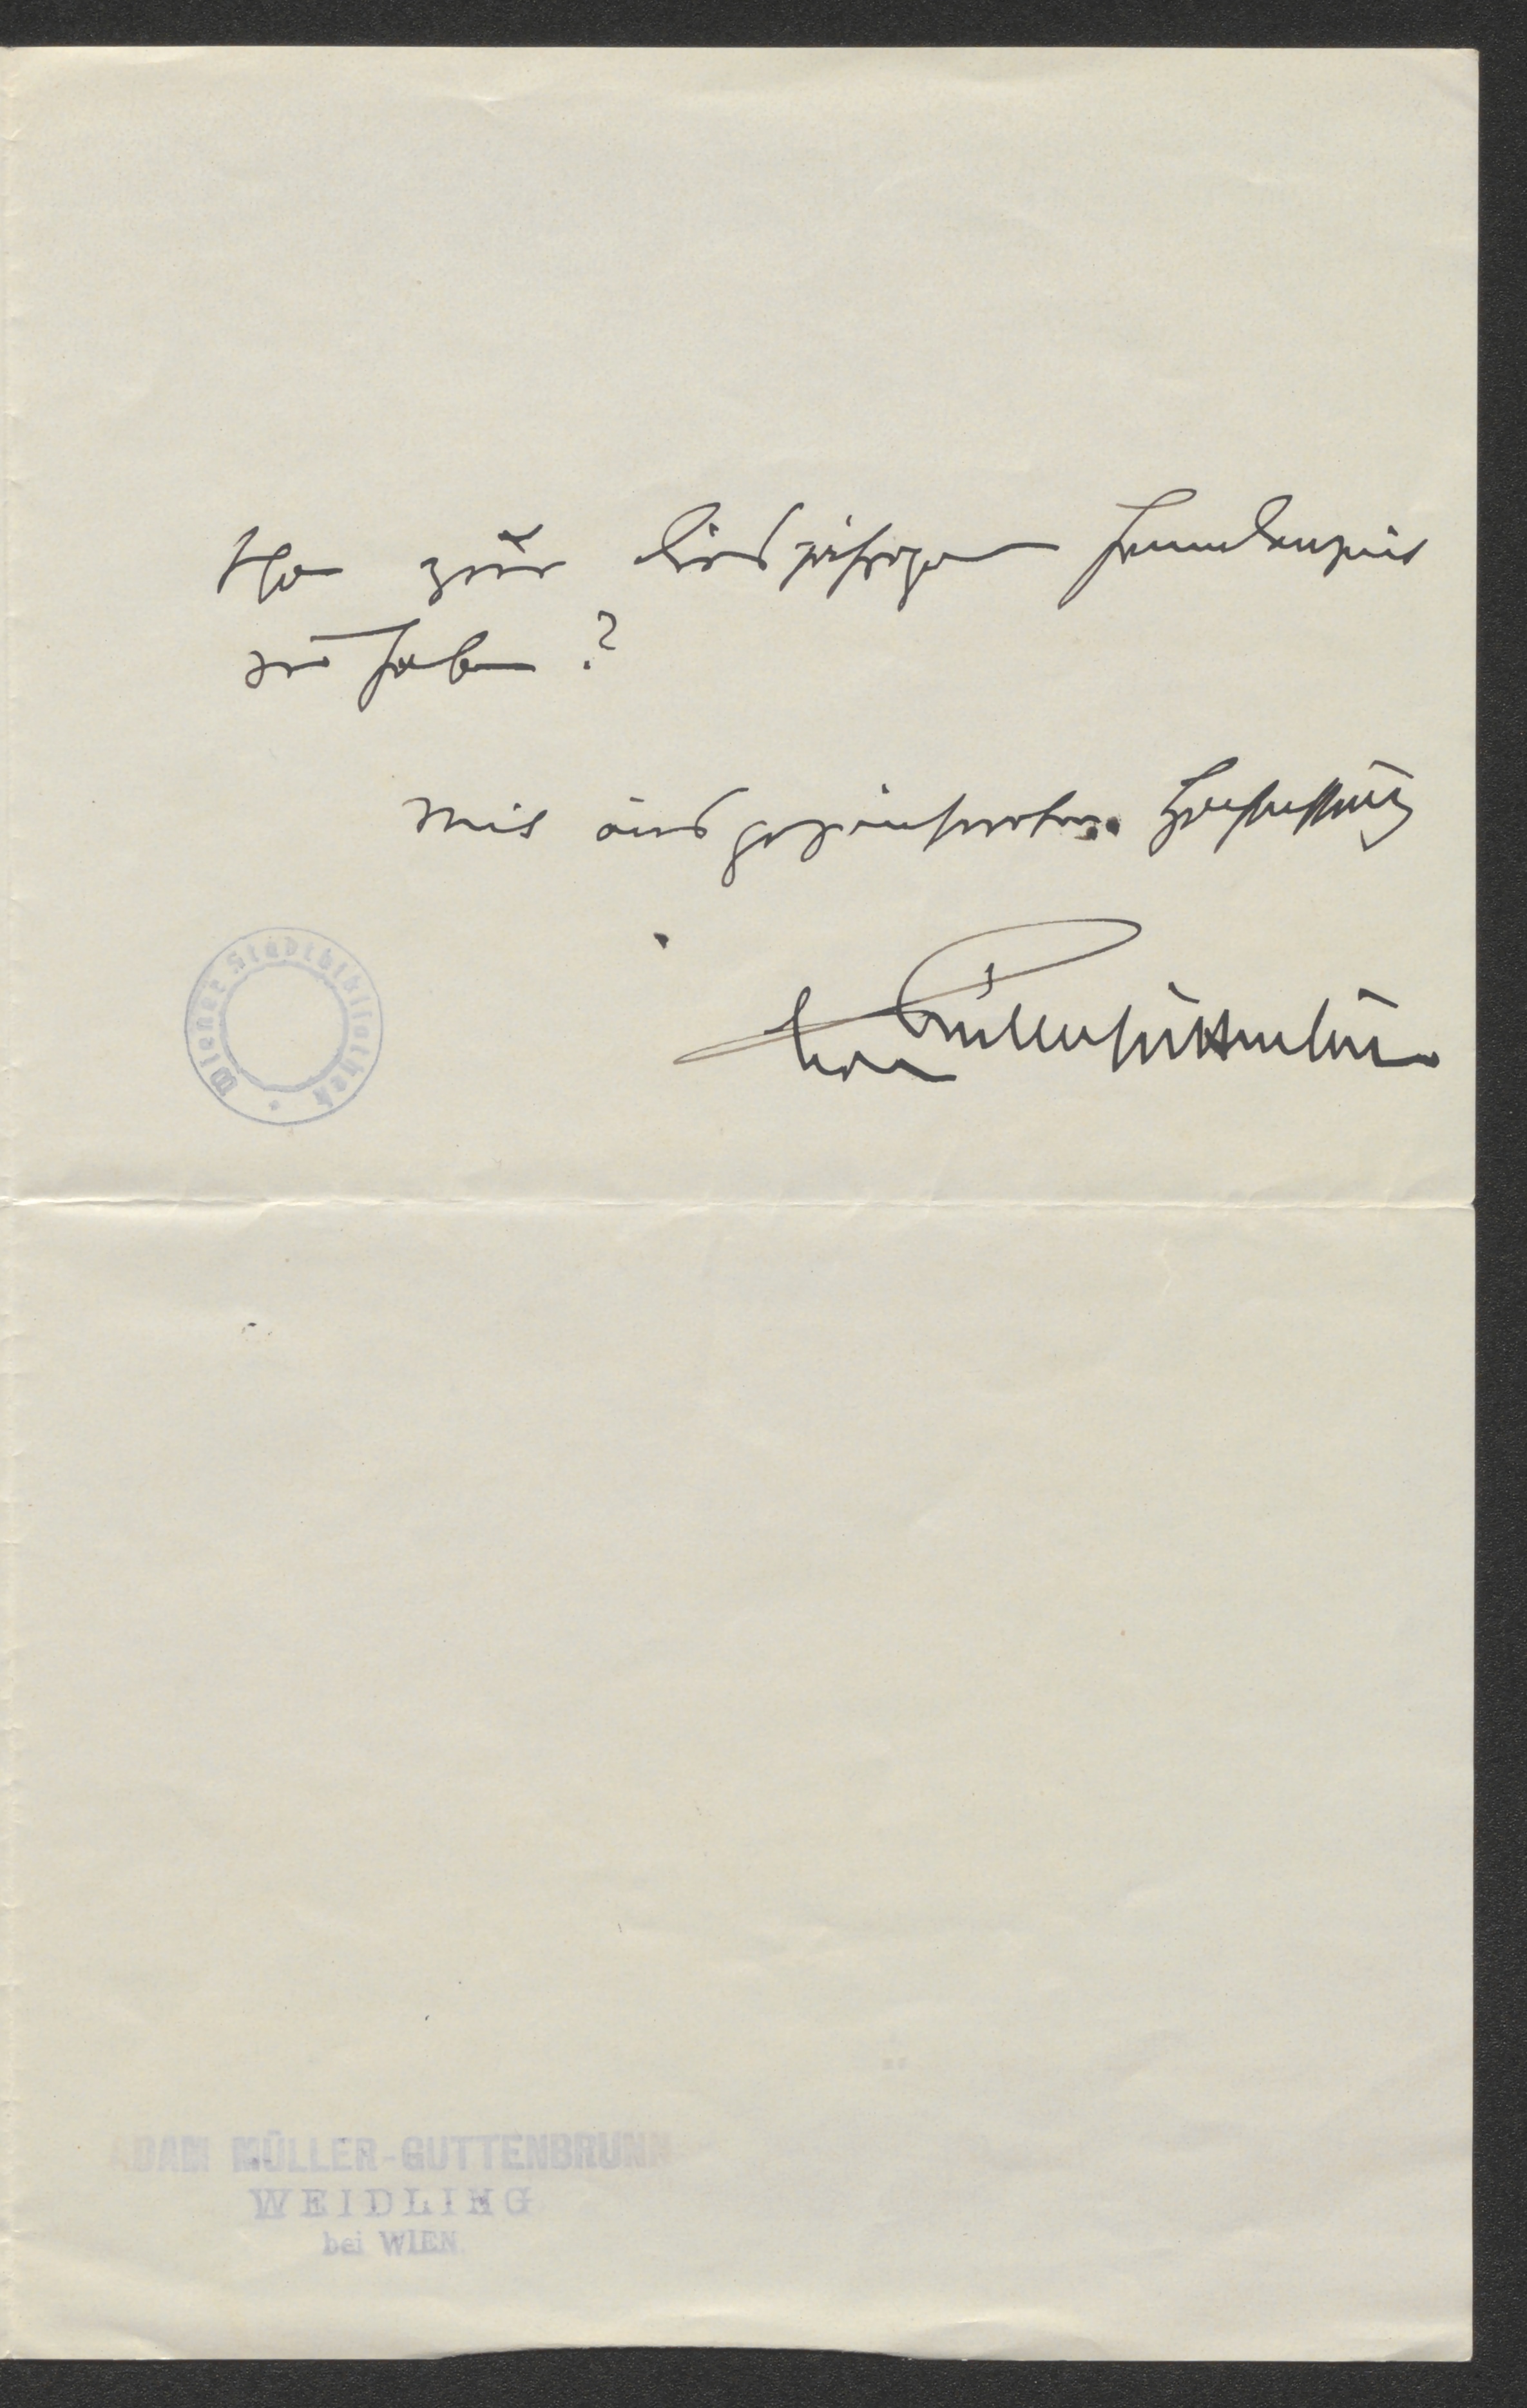 zur diesjährigen Sommerszeit
zu haben?
Mit ausgezeichneter Hochachtung
Adam Müllerguttenbrunn
Wiener Stadtbibliothek
ADAM MÜLLER-GUTTENBRUNN
WEIDLING
bei WIEN